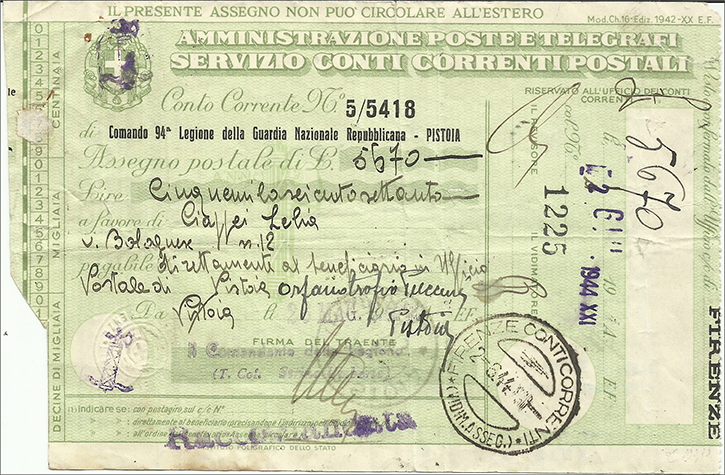 IL PRESENTE ASSEGNO NON PUO' CIRCOLARE ALL'ESTERO
Mod. Ch. 16 - Ediz. 1942 - XX E.F.
AMMINISTRAZIONE POSTE E TELEGRAFI
SERVIZIO CONTI CORRENTI POSTALI
Conto Corrente N.° 5/5418
di Comando 94ª Legione della Guardia Nazionale Repubblicana - PISTOIA
Assegno postale di L. 5670
Lire Cinquemilaseicentosettanta
a favore di Ciappei Lelia
v. Bolognese n. 12
pagabile direttamente al beneficiario in Ufficio
Postale di Pistoia
Da Pistoia
FIRMA DEL TRAENTE
Il Comandante della Legione
(T. Col.
n indicare se: con postagiro sul c/c N°
direttamente al beneficiario
all'ordine
ISTITUTO POLIGRAFICO DELLO STATO
Raccomandata
CENTINAIA
MIGLIAIA
DECINE DI MIGLIAIA
RISERVATO ALL'UFFICIO DEI CONTI CORRENTI
IL REVISORE
1225
IL VIDIMATORE
1944 XXI
5670
FIRENZE
FIRENZE CONTI CORRENTI
(VIDIM. ASSEG.)
2-6.44
Pistoia